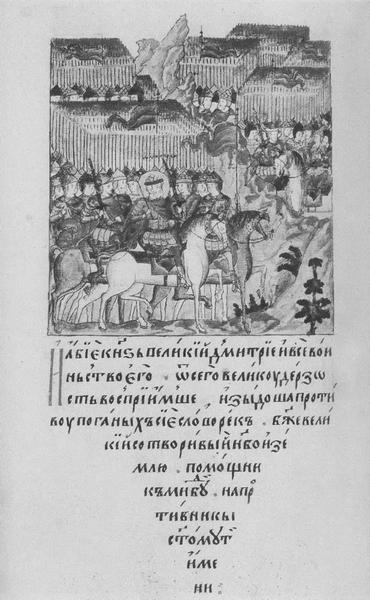 Иабїе кнѕь великїй дмитрїе ивсевои
ньство его . ѿсего велико удерзо
сть воспрїимше , изыдоша проти
ву поганыхъ сїе слово рекъ . бже вели
кїй сотворивый нбо изе
млю . помощни
къ ми бꙋди . напро
тивникы
стомꙋт
име
ни :